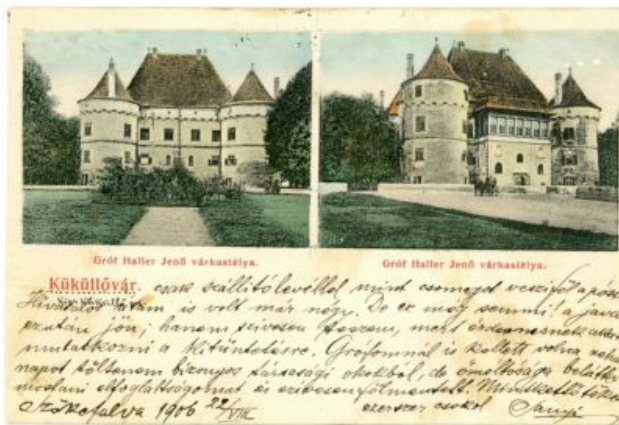 Gróf Haller Jenő várkastélya.
Gróf Haller Jenő várkastélya.
Küküllővár.
csak szállitólevéllel mint csomagot veszi föl a pósta
Hivatalos utam is volt már négy. De ez még semmi, a java
ezután jön; hanem szivesen teszem, mert érdemesnek
mutatkozni a kitüntetésre. Grófomnál is kellett volna
napot töltenem bizonyos társasági okokból, de őméltósága
elfoglaltságomat és szivesen fölmentett.
Szőkefalva 1906 22/VIII ezerszer csókol